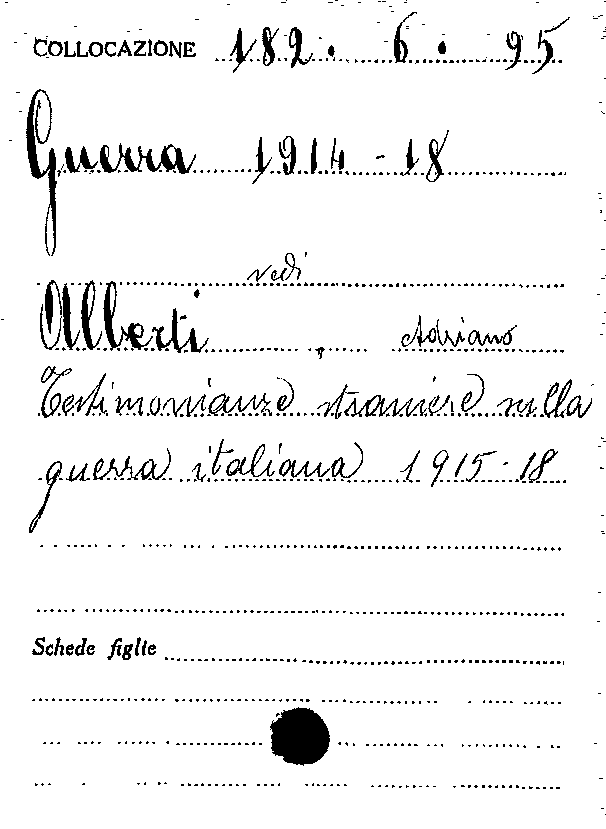 COLLOCAZIONE 182. 6. 95
Guerra 1914-18
vedi
Alberti, Adriano
Testimonianze straniere sulla
guerra italiana 1915-18
Schede figlie